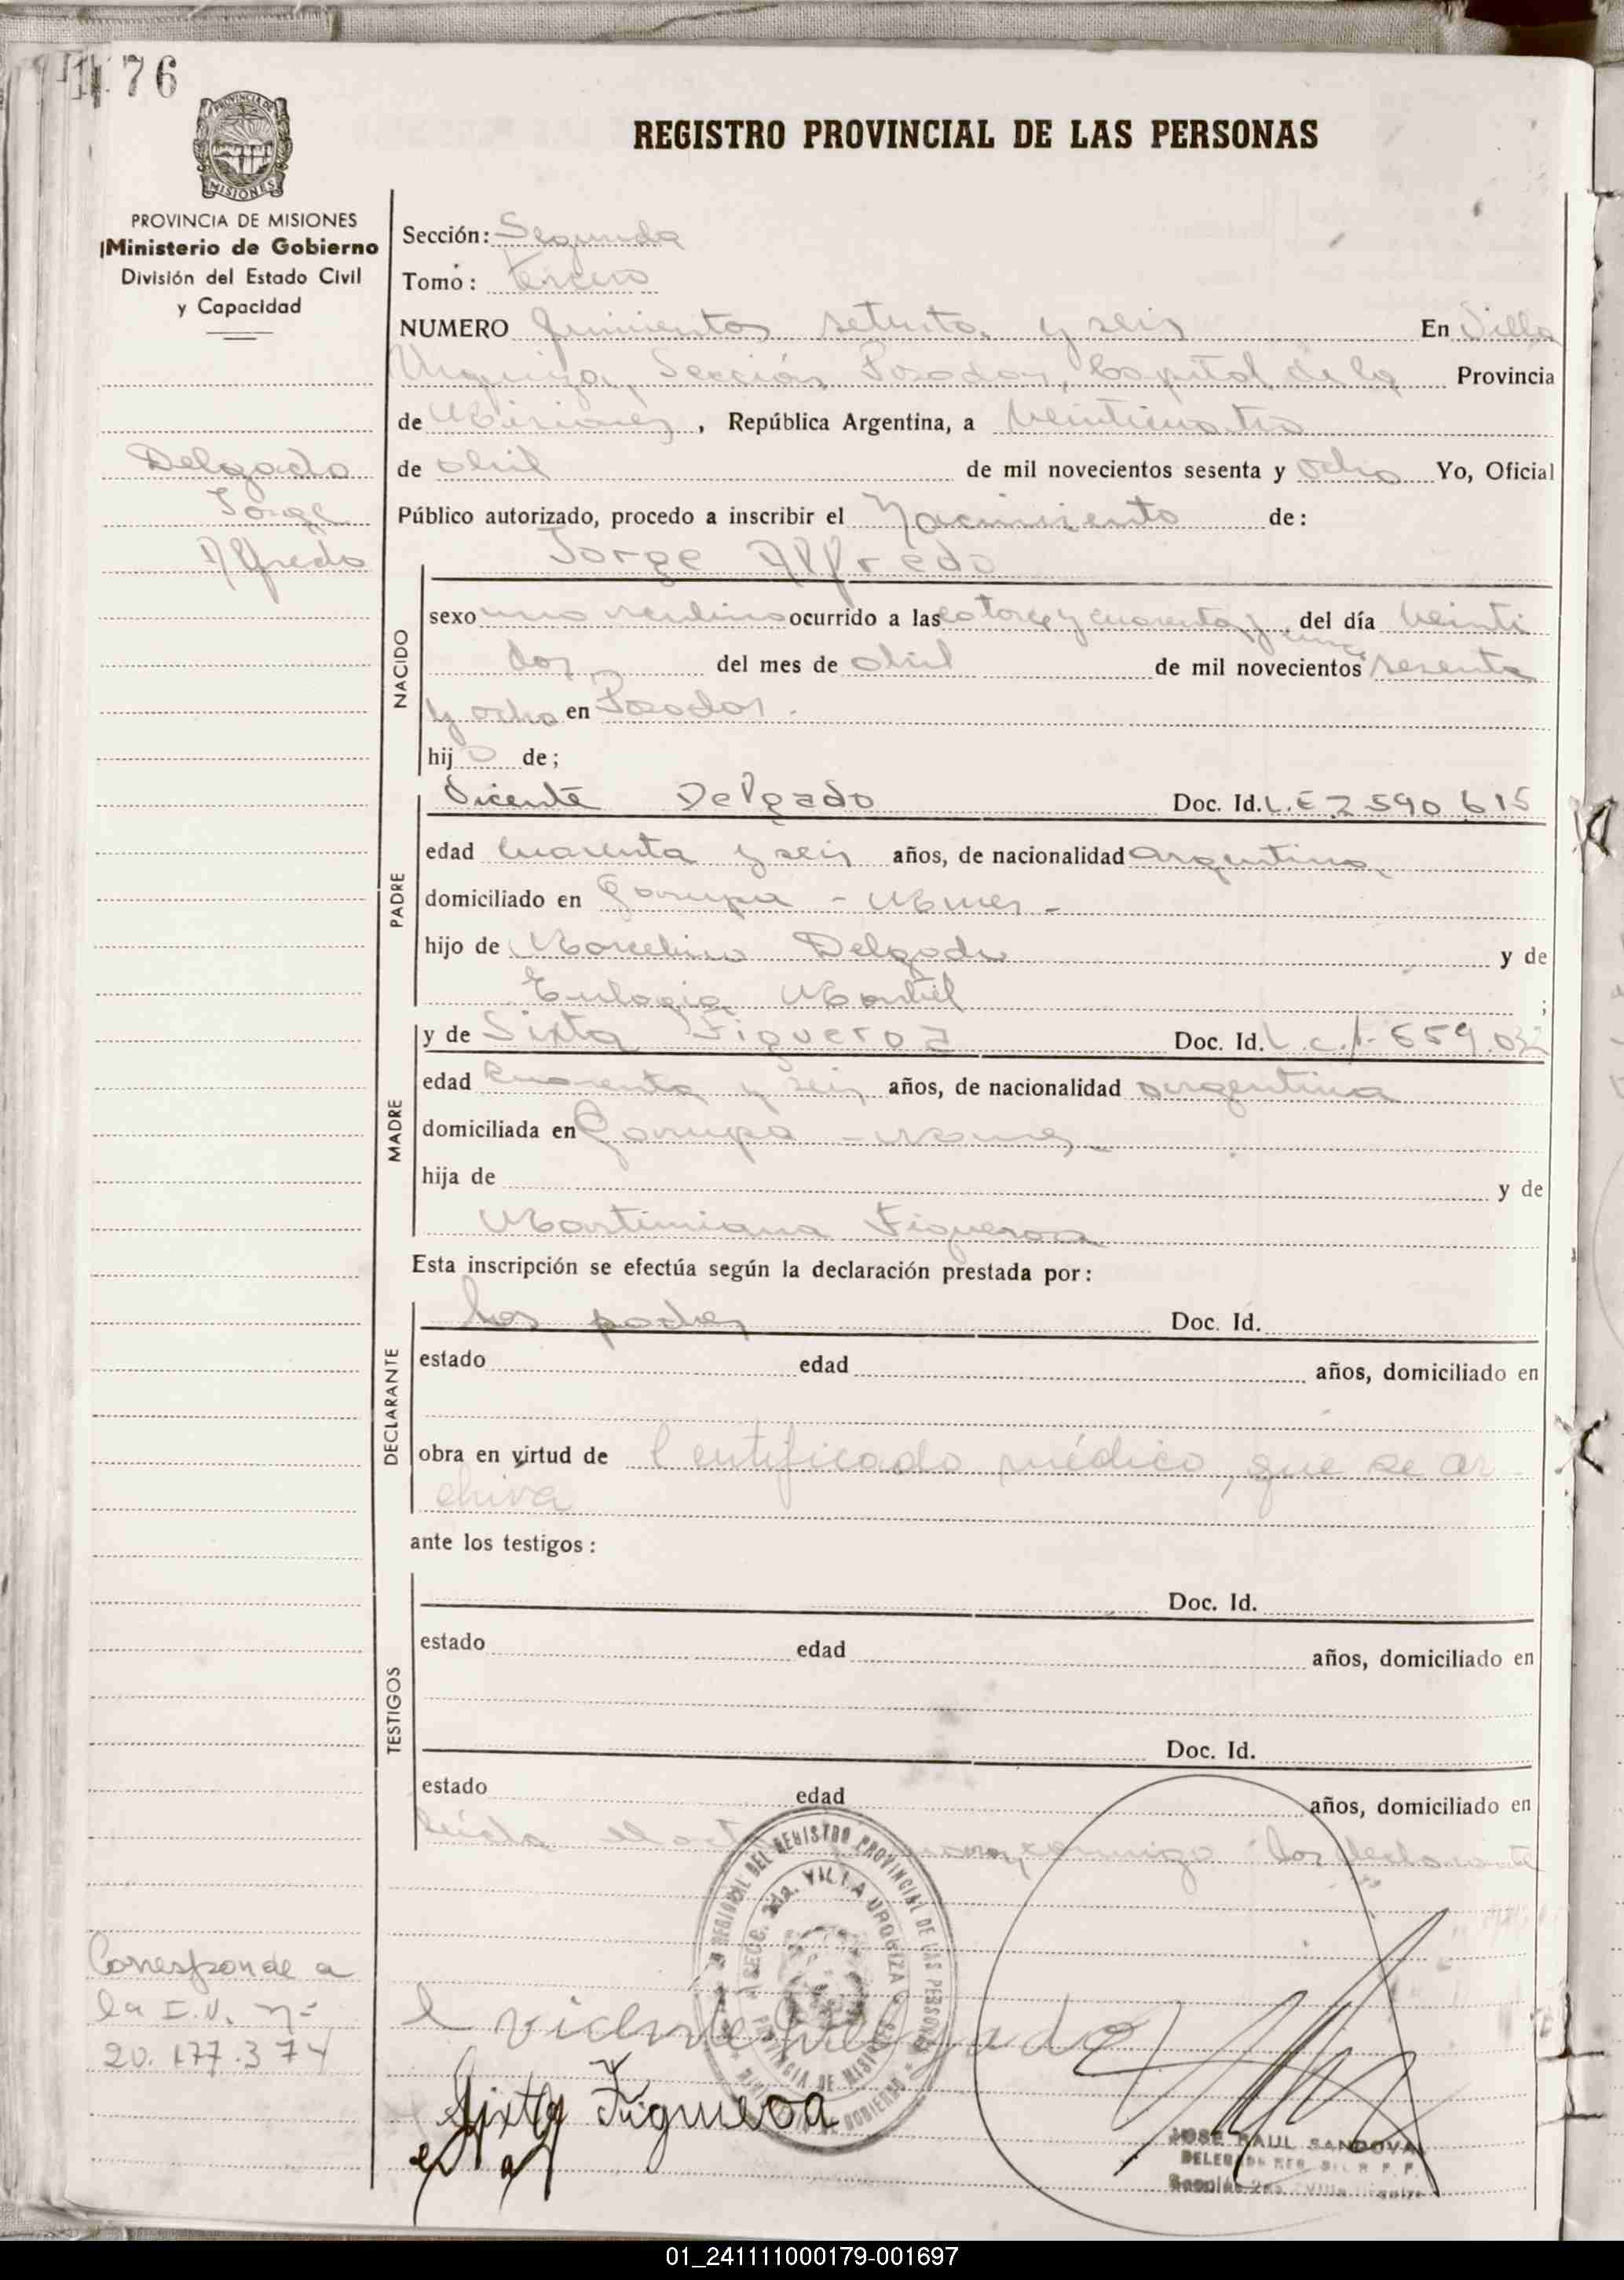 76
REGISTRO PROVINCIAL DE LAS PERSONAS
PROVINCIA DE MISIONES
Ministerio de Gobierno
División del Estado Civil
y Capacidad
Delgado
Jorge
Alfredo
Sección: Segunda
Tomo: tercero
NUMERO quinientos setenta y seis En Villa
Urquiza, Sección Posadas, Capital de la Provincia
de Misiones, República Argentina, a veinticuatro
de abril de mil novecientos sesenta y ocho Yo, Oficial
Público autorizado, procedo a inscribir el Nacimiento de:
Jorge Alfredo
NACIDO
sexo masculino ocurrido a las catorce y cuarenta y cinco del día veinti
dos del mes de abril de mil novecientos sesenta
y ocho en Posadas.
hijo de;
PADRE
Vicente Delgado Doc. Id. L.E 7 590 615
edad cuarenta y seis años, de nacionalidad argentina
domiciliado en Garupa - Mnes -
hijo de Marcelino Delgado y de
Eulogia Montiel ;
MADRE
y de Sixta Figueroa Doc. Id. L.C.
edad cuarenta y seis años, de nacionalidad argentina
domiciliada en Garupa - Mnes
hija de y de
Martiniana Figueroa
Esta inscripción se efectúa según la declaración prestada por:
DECLARANTE
los padres Doc. Id.
estado edad años, domiciliado en
obra en virtud de Certificado médico, que se ar-
chiva
ante los testigos:
TESTIGOS
Doc. Id.
estado edad años, domiciliado en
Doc. Id.
estado edad años, domiciliado en
Leída el acta conmigo los declarante
REGIONAL DEL REGISTRO PROVINCIAL DE LAS PERSONAS
SECC. 2da. VILLA URQUIZA
PROVINCIA DE MISIONES
Corresponde a
la I.N. nº
20.177.374
Vicente Delgado
Sixta Figueroa
JOSE RAUL SANDOVAL
01_241111000179-001697